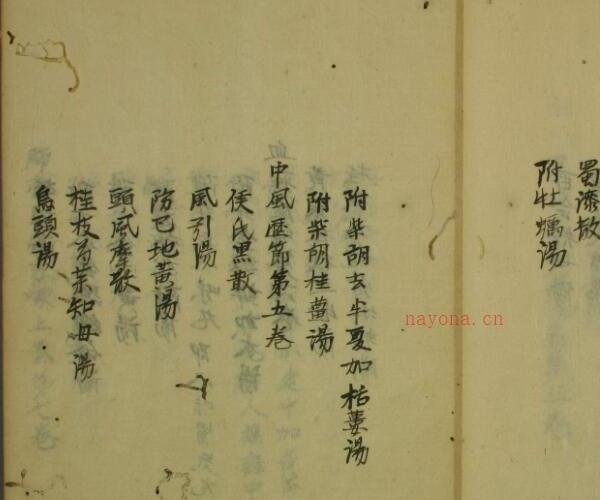 蜀漆散
附牡蠣湯
附柴胡去半夏加栝蔞湯
附柴胡桂薑湯
中風歷節第五卷
侯氏黒散
風引湯
防已地黃湯
頭風摩散
桂枝芍藥知母湯
烏頭湯
nayona.cn